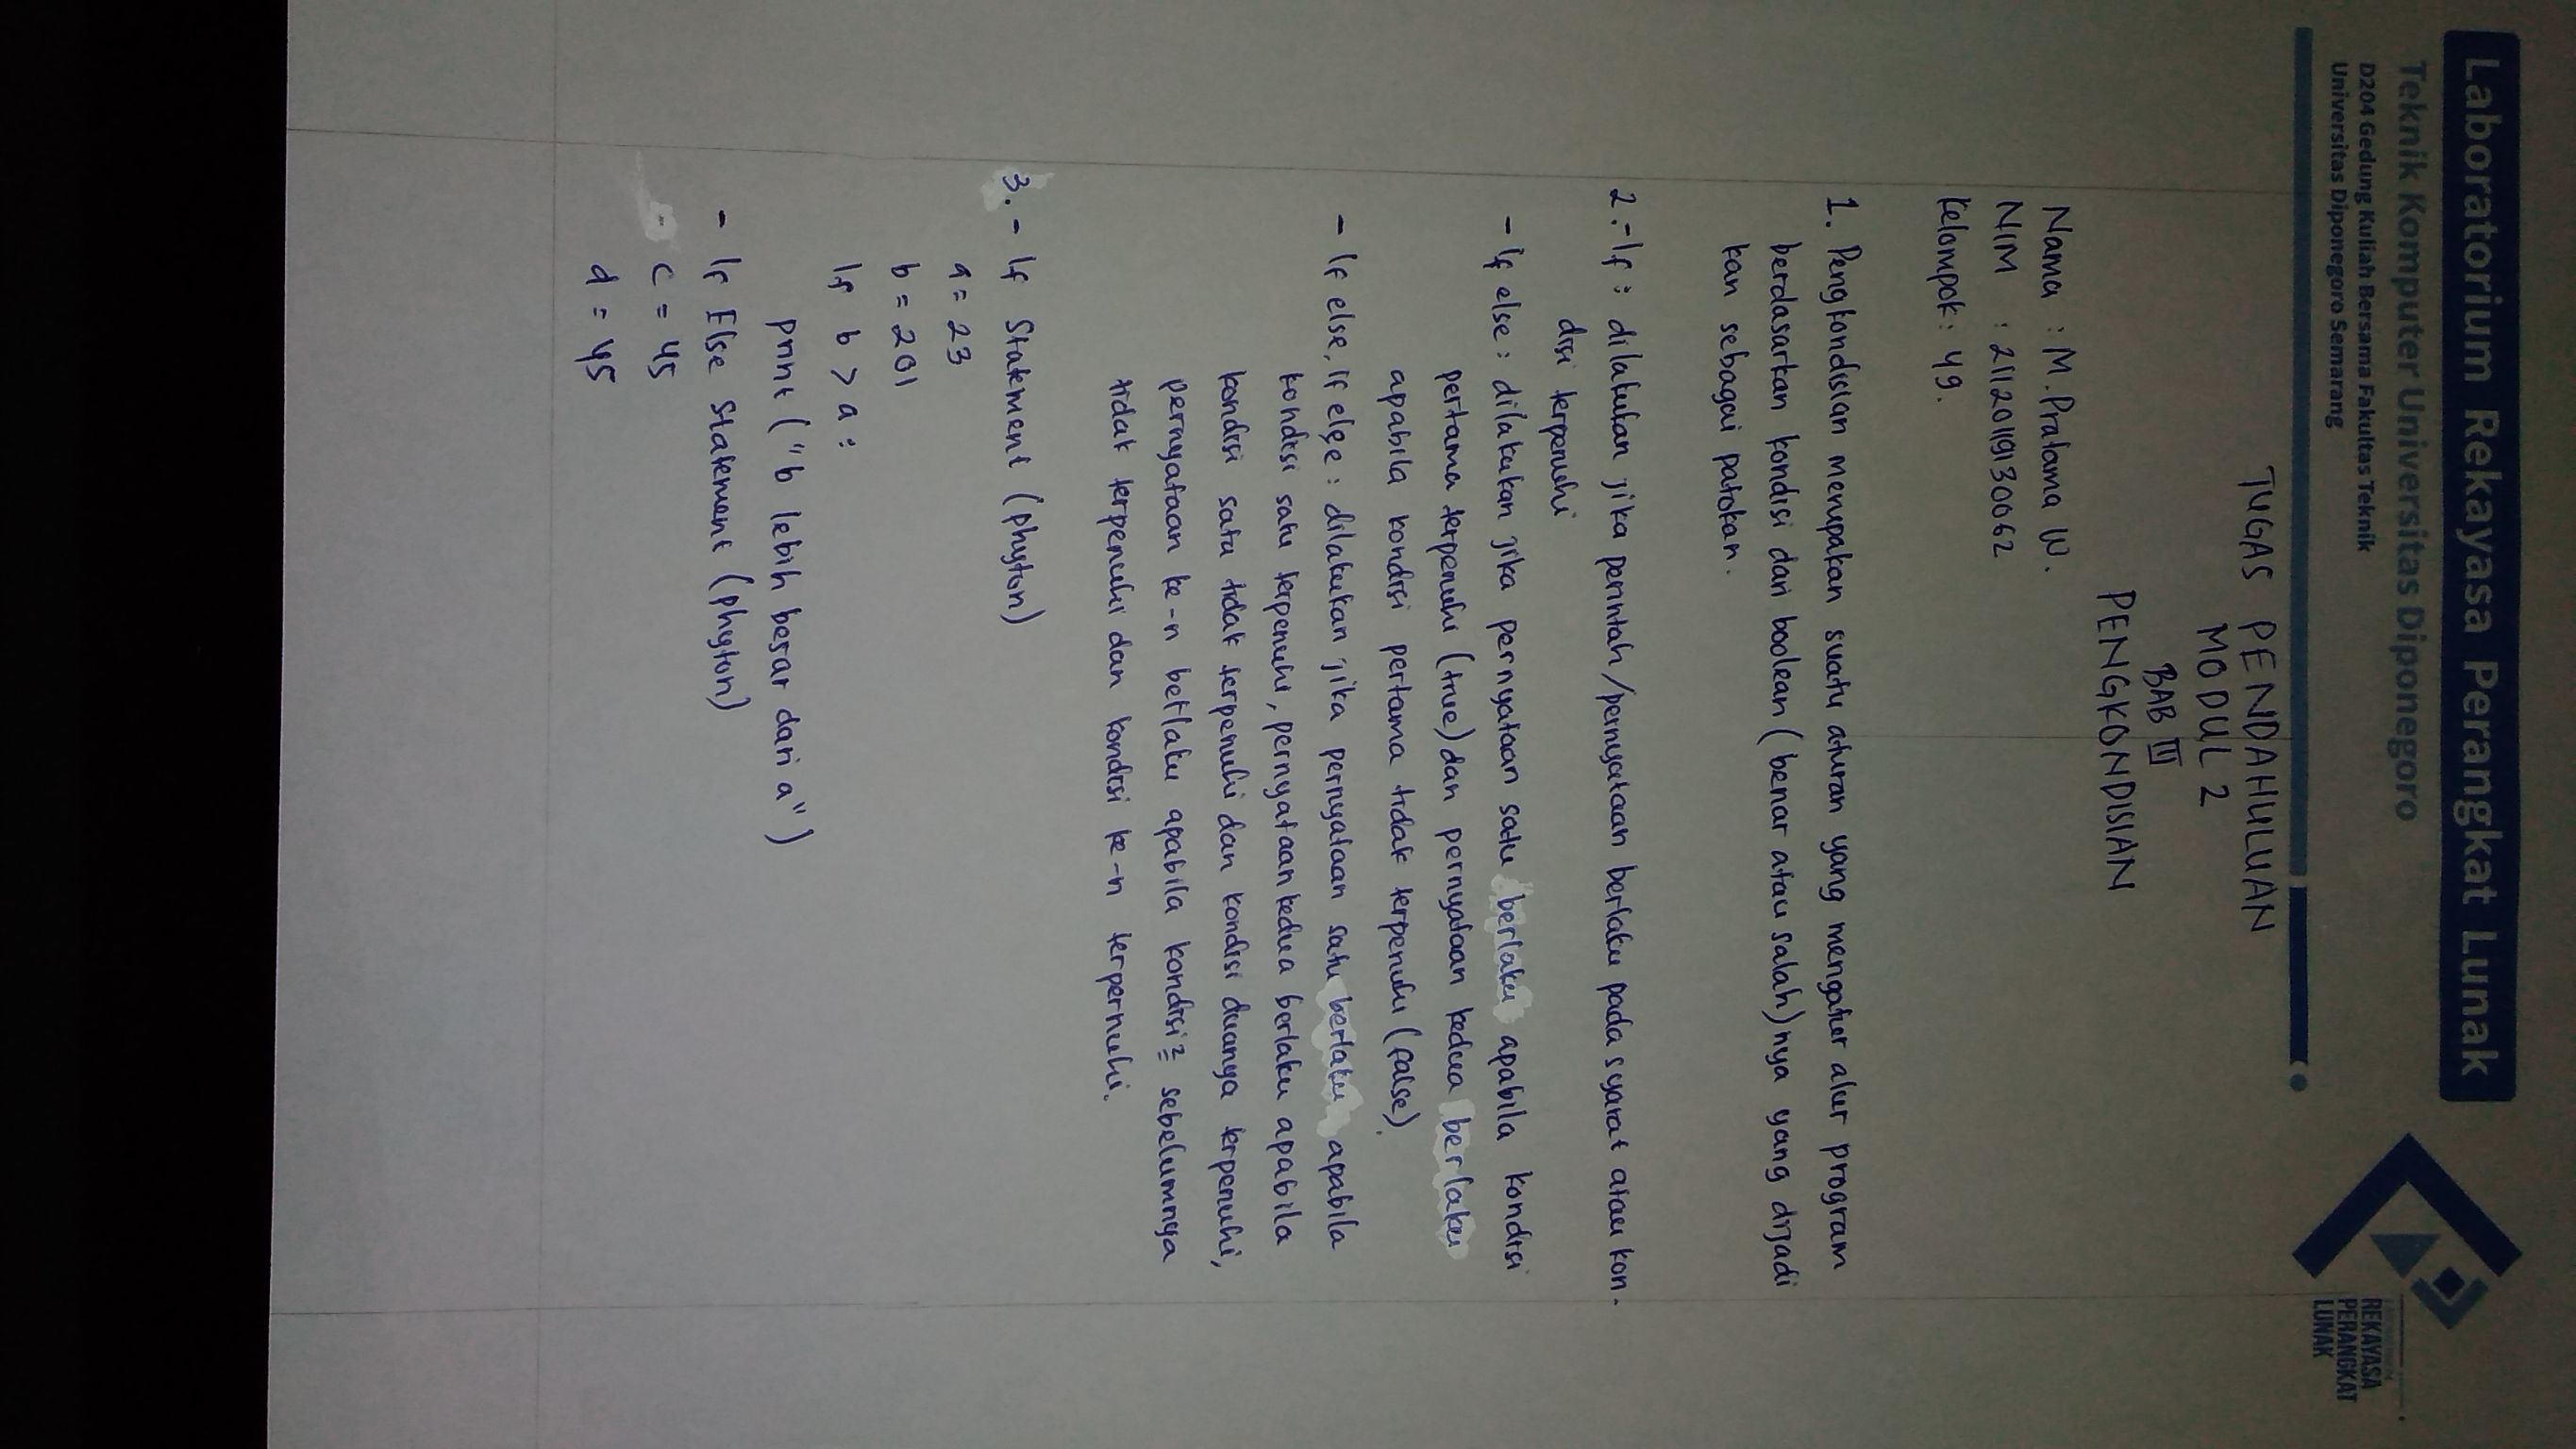 Laboratorium Rekayasa Perangkat Lunak
Teknik Komputer Universitas Diponegoro
D204 Gedung Kuliah Bersama Fakultas Teknik
Universitas Diponegoro Semarang
REKAYASA
PERANGKAT
LUNAK
TUGAS PENDAHULUAN
MODUL 2
BAB III
PENGKONDISIAN
Nama : M. Pratama W.
NIM : 21120119130062
Kelompok : 49.
1. Pengkondisian merupakan suatu aturan yang mengatur alur program
berdasarkan kondisi dari boolean (benar atau salah)nya yang dijadi
kan sebagai patokan.
2.- If : dilakukan jika perintah/pernyataan berlaku pada syarat atau kon-
disi terpenuhi
- If else : dilakukan jika pernyataan satu berlaku apabila kondisi
pertama terpenuhi (true) dan pernyataan kedua berlaku
apabila kondisi pertama tidak terpenuhi (false).
- If else, if else : dilakukan jika pernyataan satu berlaku apabila
kondisi satu terpenuhi, pernyataan kedua berlaku apabila
kondisi satu tidak terpenuhi dan kondisi duanya terpenuhi,
pernyataan ke-n berlaku apabila kondisi2 sebelumnya
tidak terpenuhi dan kondisi ke-n terpernuhi.
3. - If Statement (phyton)
a = 23
b = 201
If b > a :
print ("b lebih besar dari a")
- If Else Statement (phyton)
c = 45
d = 45